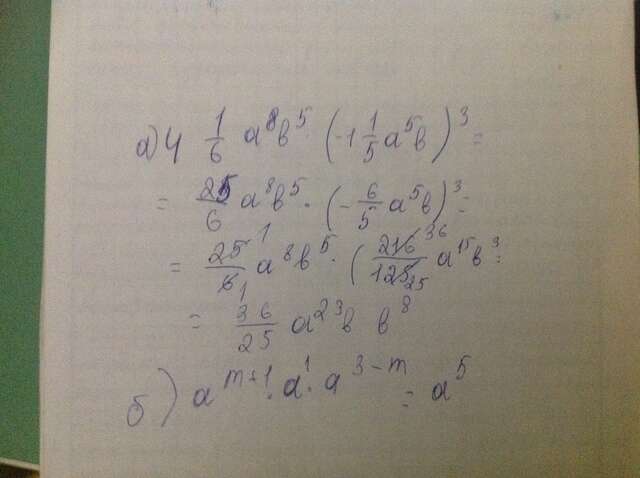 а) 4 1/6 a⁸b⁵ · (-1 1/5 a⁵b)³ =
= 25/6 a⁸b⁵ · (-6/5 a⁵b)³ =
= 25 1/6 1 a⁸b⁵ · (216 36/125 25 a¹⁵b³ =
= 36/25 a²³b b⁸
б) a^(m+1) · a¹ · a^(3-m) = a⁵